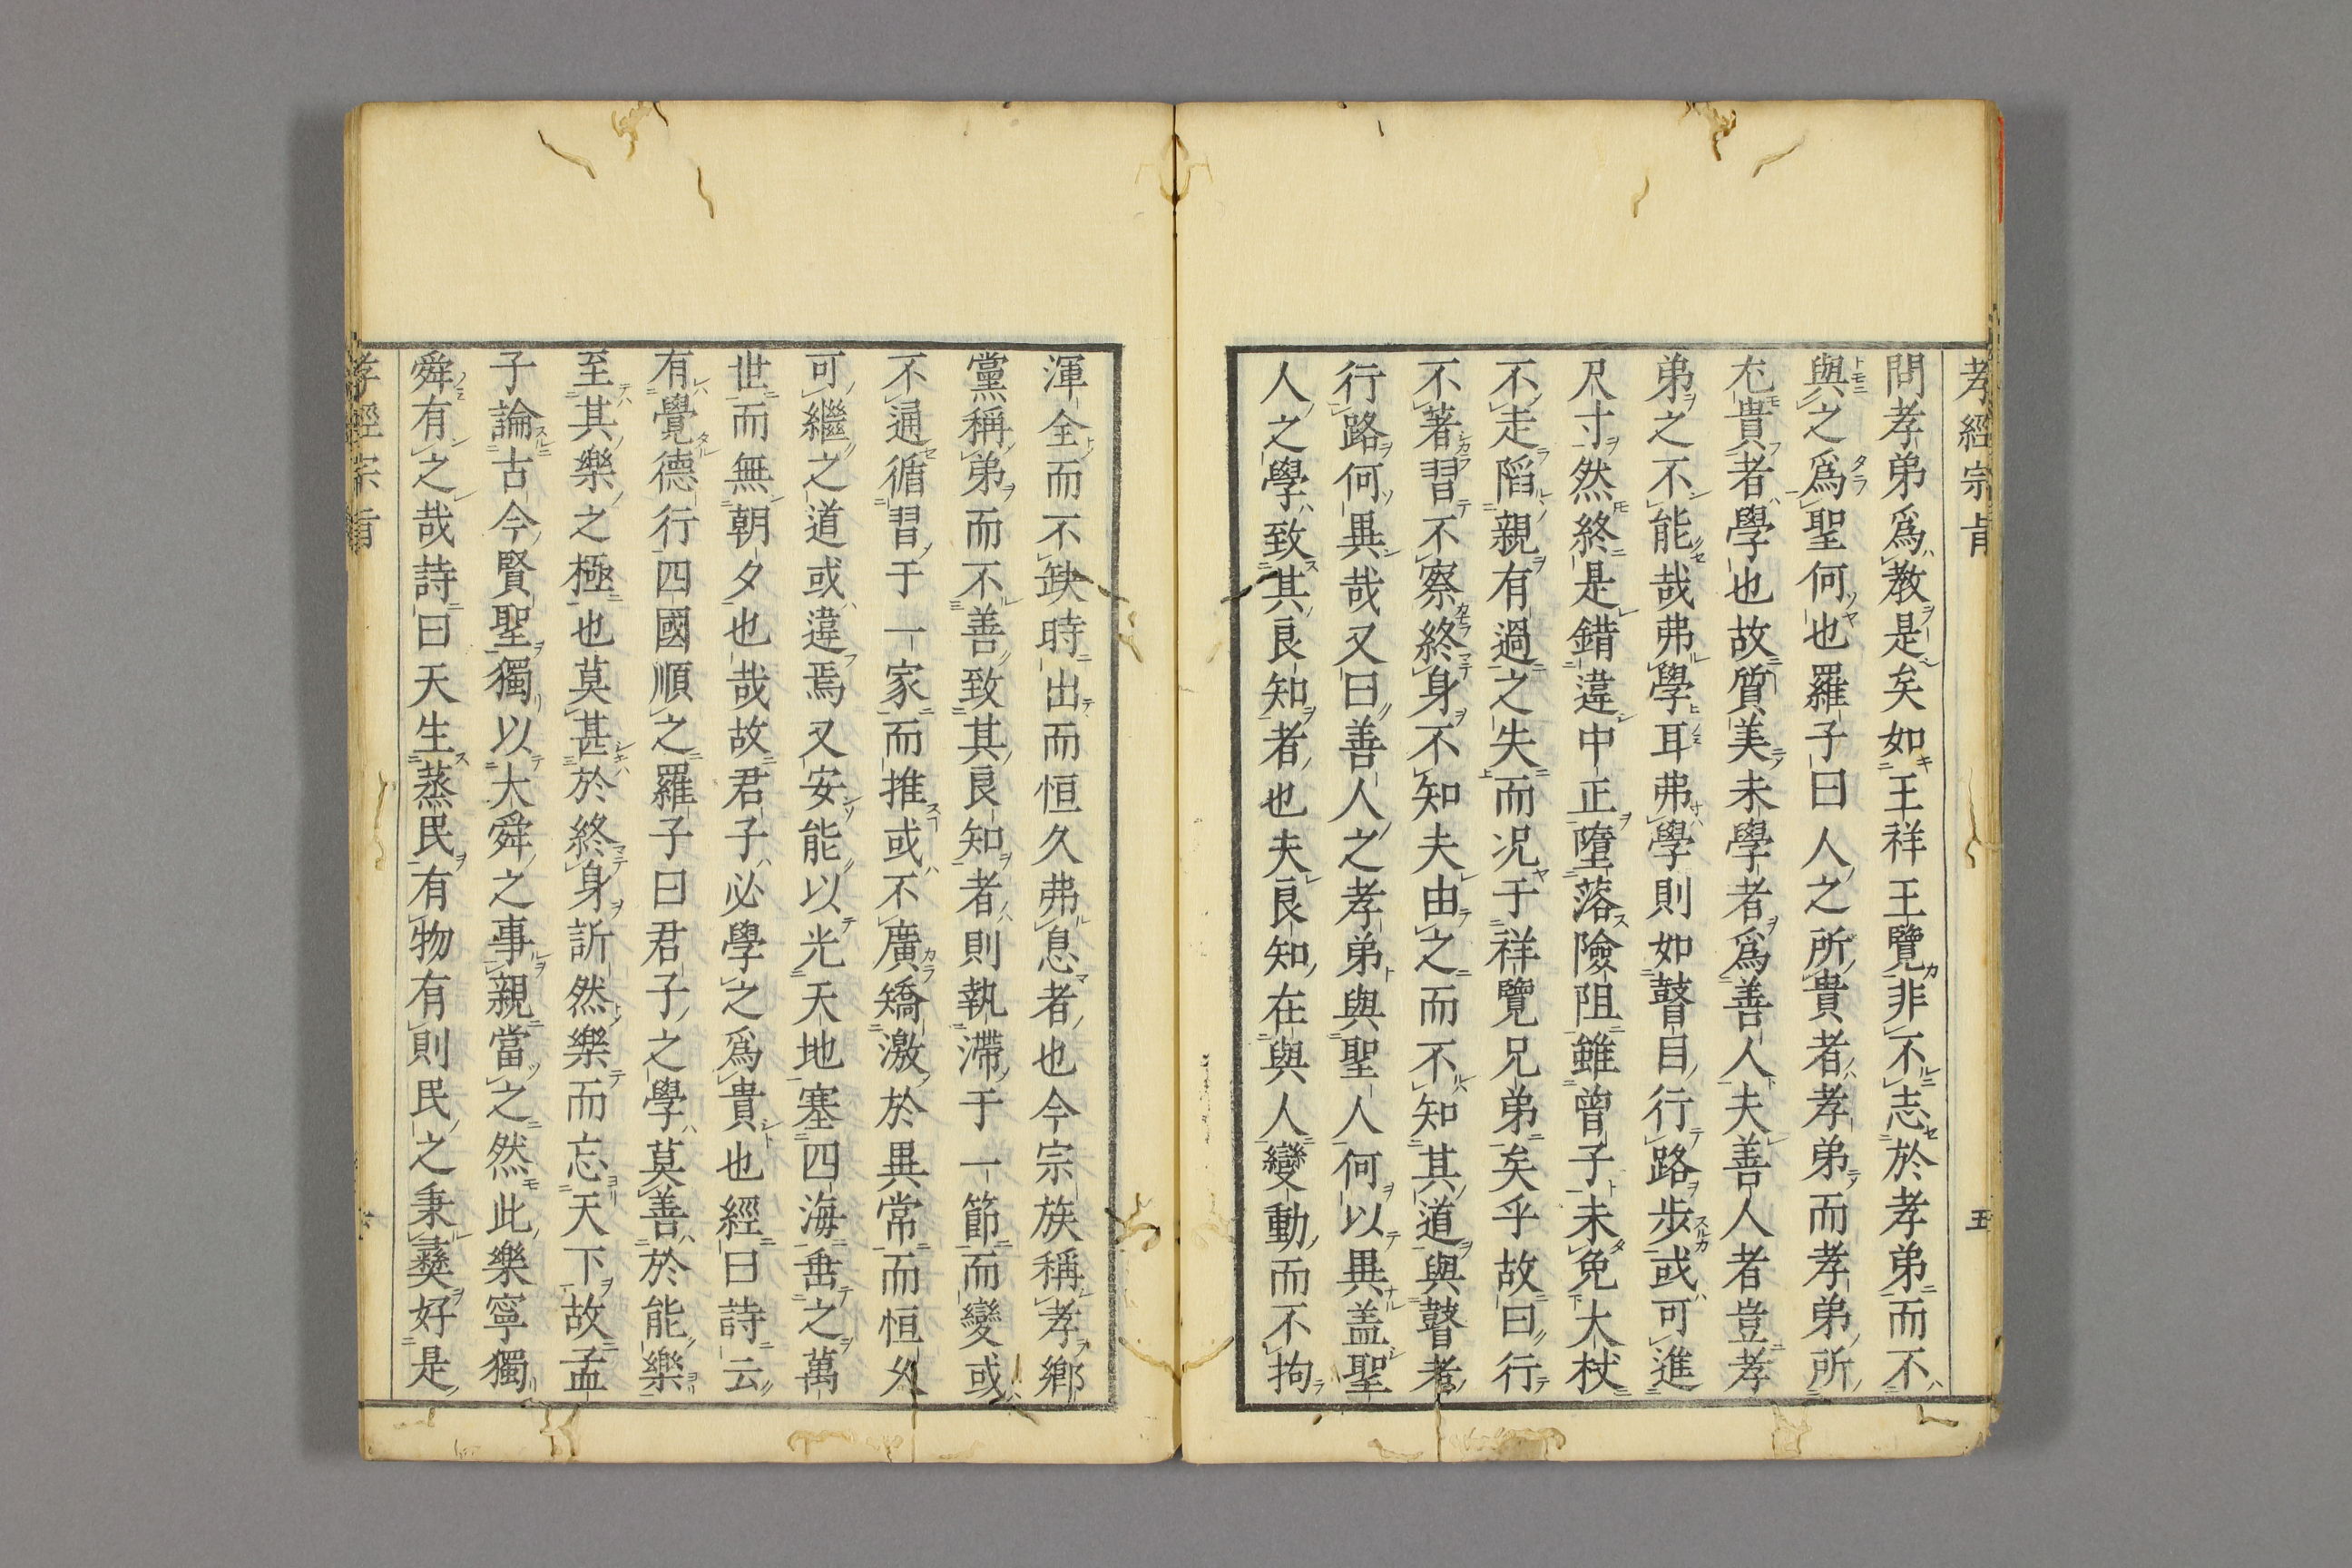 孝經宗旨 五
問孝弟爲教是矣如王祥王覽非不志於孝弟而不
與之爲聖何也羅子曰人之所貴者孝弟而孝弟所
尤貴者學也故質美未學者爲善人夫善人者豈孝
弟之不能哉弗學耳弗學則如瞽目行路步或可進
尺寸然終是錯違中正墮落險阻雖曾子未免大杖
不走陷親有過之失而况于祥覽兄弟矣乎故曰行
不著習不察終身不知夫由之而不知其道與瞽者
行路何異哉又曰善人之孝弟與聖人何以異盖聖
人之學致其良知者也夫良知在與人變動而不拘
渾全而不缺時出而恒久弗息者也今宗族稱孝鄉
黨稱弟而不善致其良知者則執滯于一節而變或
不通循習于一家而推或不廣矯激於異常而恒久
可繼之道或違焉又安能以光天地塞四海垂之萬
世而無朝夕也哉故君子必學之爲貴也經曰詩云
有覺德行四國順之羅子曰君子之學莫善於能樂
至其樂之極也莫甚於終身訢然樂而忘天下故孟
子論古今賢聖獨以大舜之事親當之然此樂寧獨
舜有之哉詩曰天生蒸民有物有則民之秉彝好是
孝經宗旨